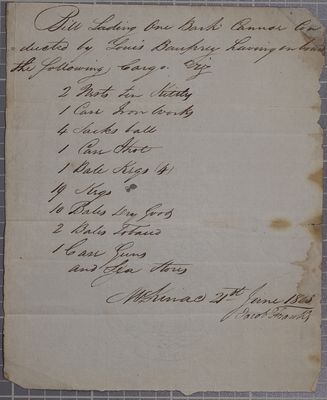 Bill Lading One Bark Cannoe Con
ducted by Louis having on board
the following Cargo. Viz
2 Nests tin Kettles
1 Case Iron Works
4 Sacks ball
1 Case Shot
1 Bale Kegs (4)
19 Kegs
10 Bales Dry Goods
2 Bales Tobacco
1 Case Guns
and Sea Stores
McKinac 21th June
Jacob Franks